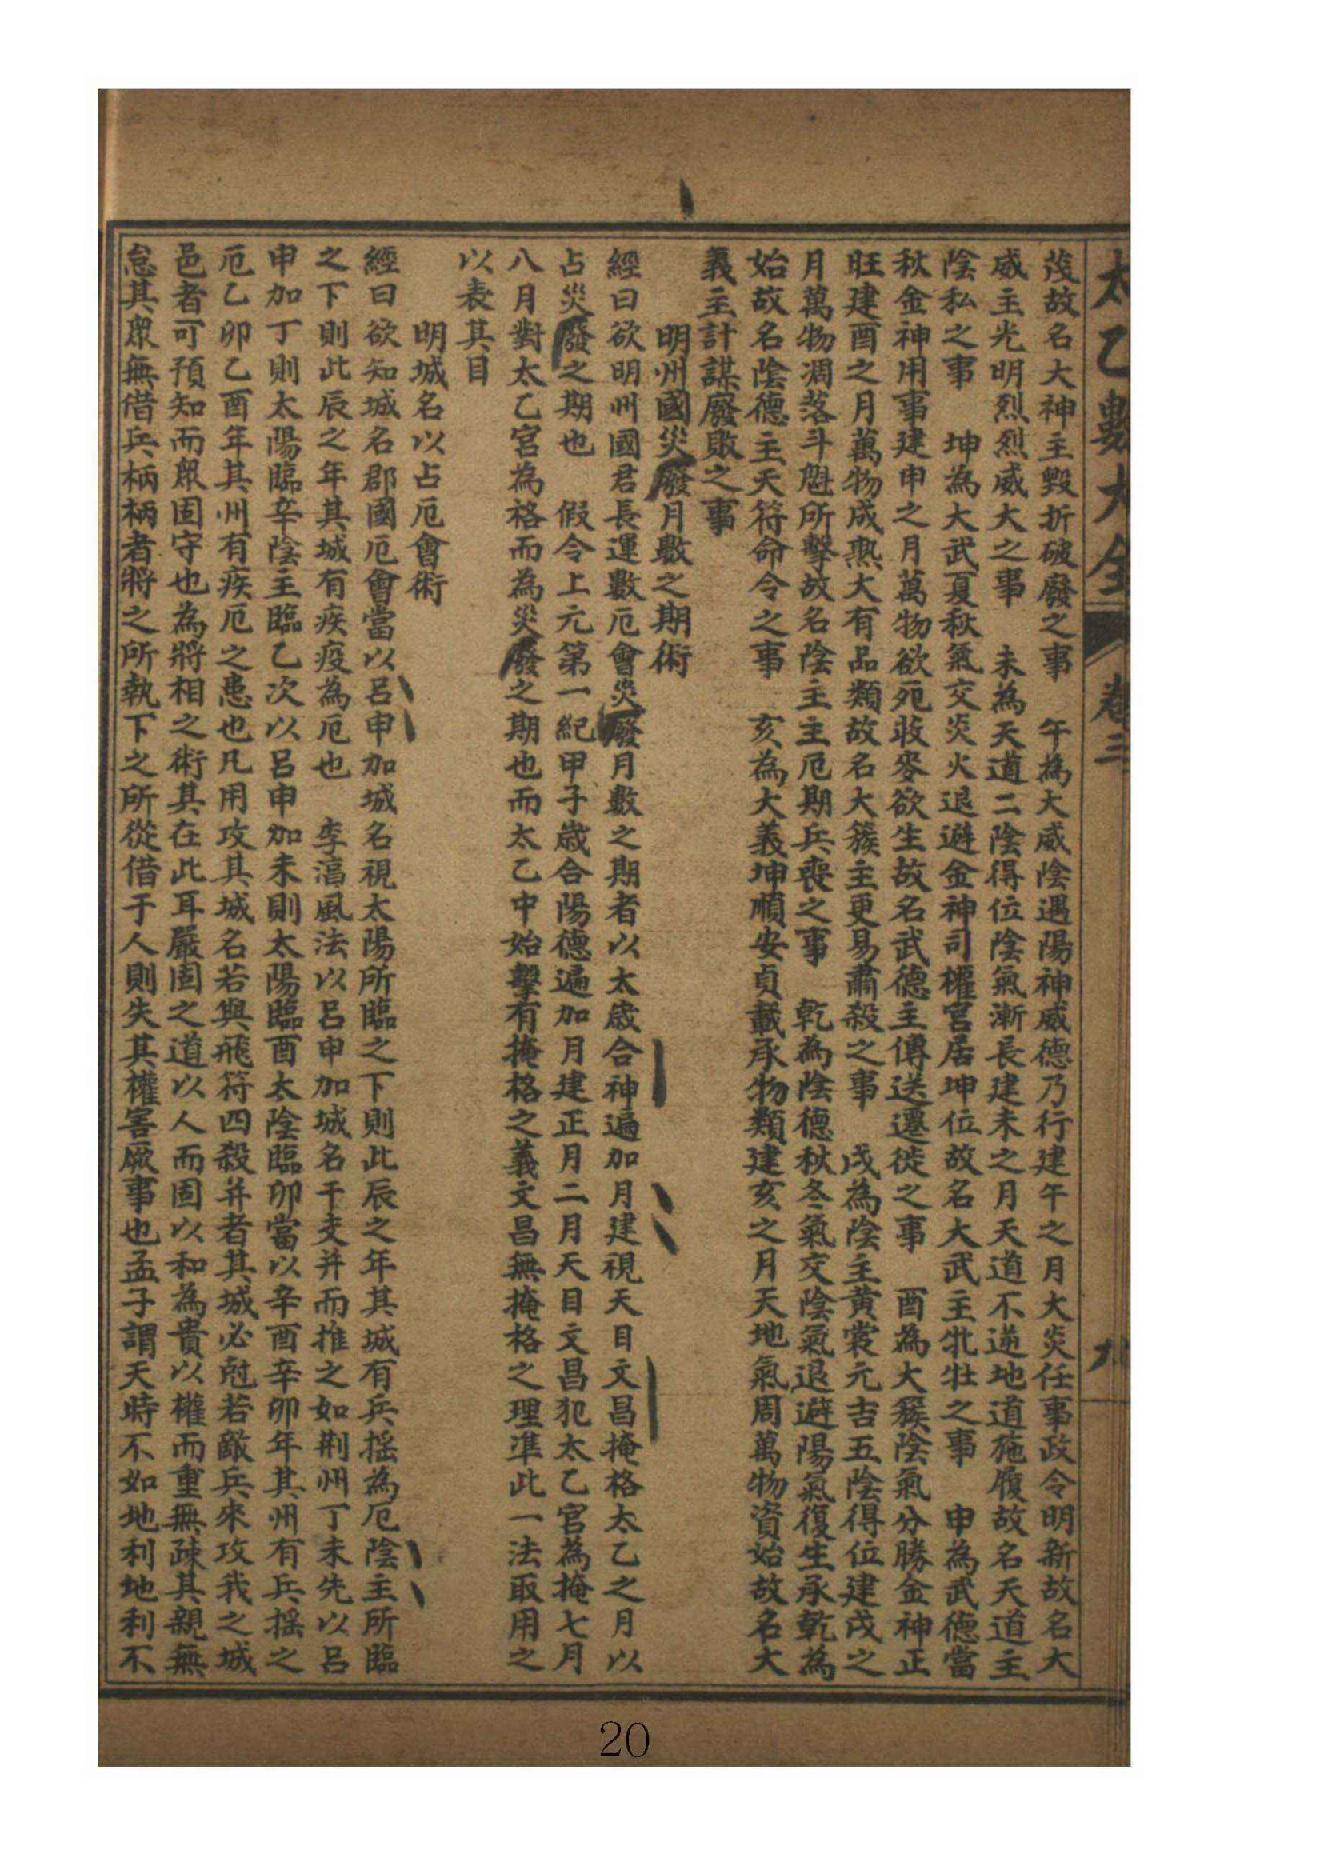 太乙數大全 卷三 九
茂故名大神主毀折破廢之事　午為大威陰遇陽神威德乃行建午之月大炎任事政令明新故名大
威主光明烈烈威大之事　未為天道二陰得位陰氣漸長建未之月天道不逆地道施履故名天道主
陰私之事　坤為大武夏秋氣交炎火退避金神司權宮居坤位故名大武主牝牡之事　申為武德當
秋金神用事建申之月萬物欲死收麥欲生故名武德主傳送遷徙之事　酉為大簇陰氣分勝金神正
旺建酉之月萬物成熟大有品類故名大簇主更易肅殺之事　戌為陰主黃裳元吉五陰得位建戌之
月萬物凋落斗魁所擊故名陰主主厄期兵喪之事　乾為陰德秋冬氣交陰氣退避陽氣復生承乾為
始故名陰德主天符命令之事　亥為大義坤順安貞載承物類建亥之月天地氣周萬物資始故名大
義主計謀廢敗之事
明州國災廢月數之期術
經曰欲明州國君長運數厄會災廢月數之期者以太歲合神遍加月建視天目文昌掩格太乙之月以
占災廢之期也　假令上元第一紀甲子歲合陽德遍加月建正月二月天目文昌犯太乙宮為掩七月
八月對太乙宮為格而為災廢之期也而太乙中始擊有掩格之義文昌無掩格之理準此一法取用之
以表其目
明城名以占厄會術
經曰欲知城名郡國厄會當以呂申加城名視太陽所臨之下則此辰之年其城有兵搖為厄陰主所臨
之下則此辰之年其城有疾疫為厄也　李淳風法以呂申加城名干支并而推之如荆州丁未先以呂
申加丁則太陽臨辛陰主臨乙次以呂申加未則太陽臨酉太陰臨卯當以辛酉辛卯年其州有兵搖之
厄乙卯乙酉年其州有疾厄之患也凡用攻其城名若與飛符四殺并者其城必尅若敵兵來攻我之城
邑者可預知而衆固守也為將相之術其在此耳嚴固之道以人而固以和為貴以權而重無疎其親無
怠其衆無借兵柄柄者將之所執下之所從借于人則失其權害厥事也孟子謂天時不如地利地利不
20